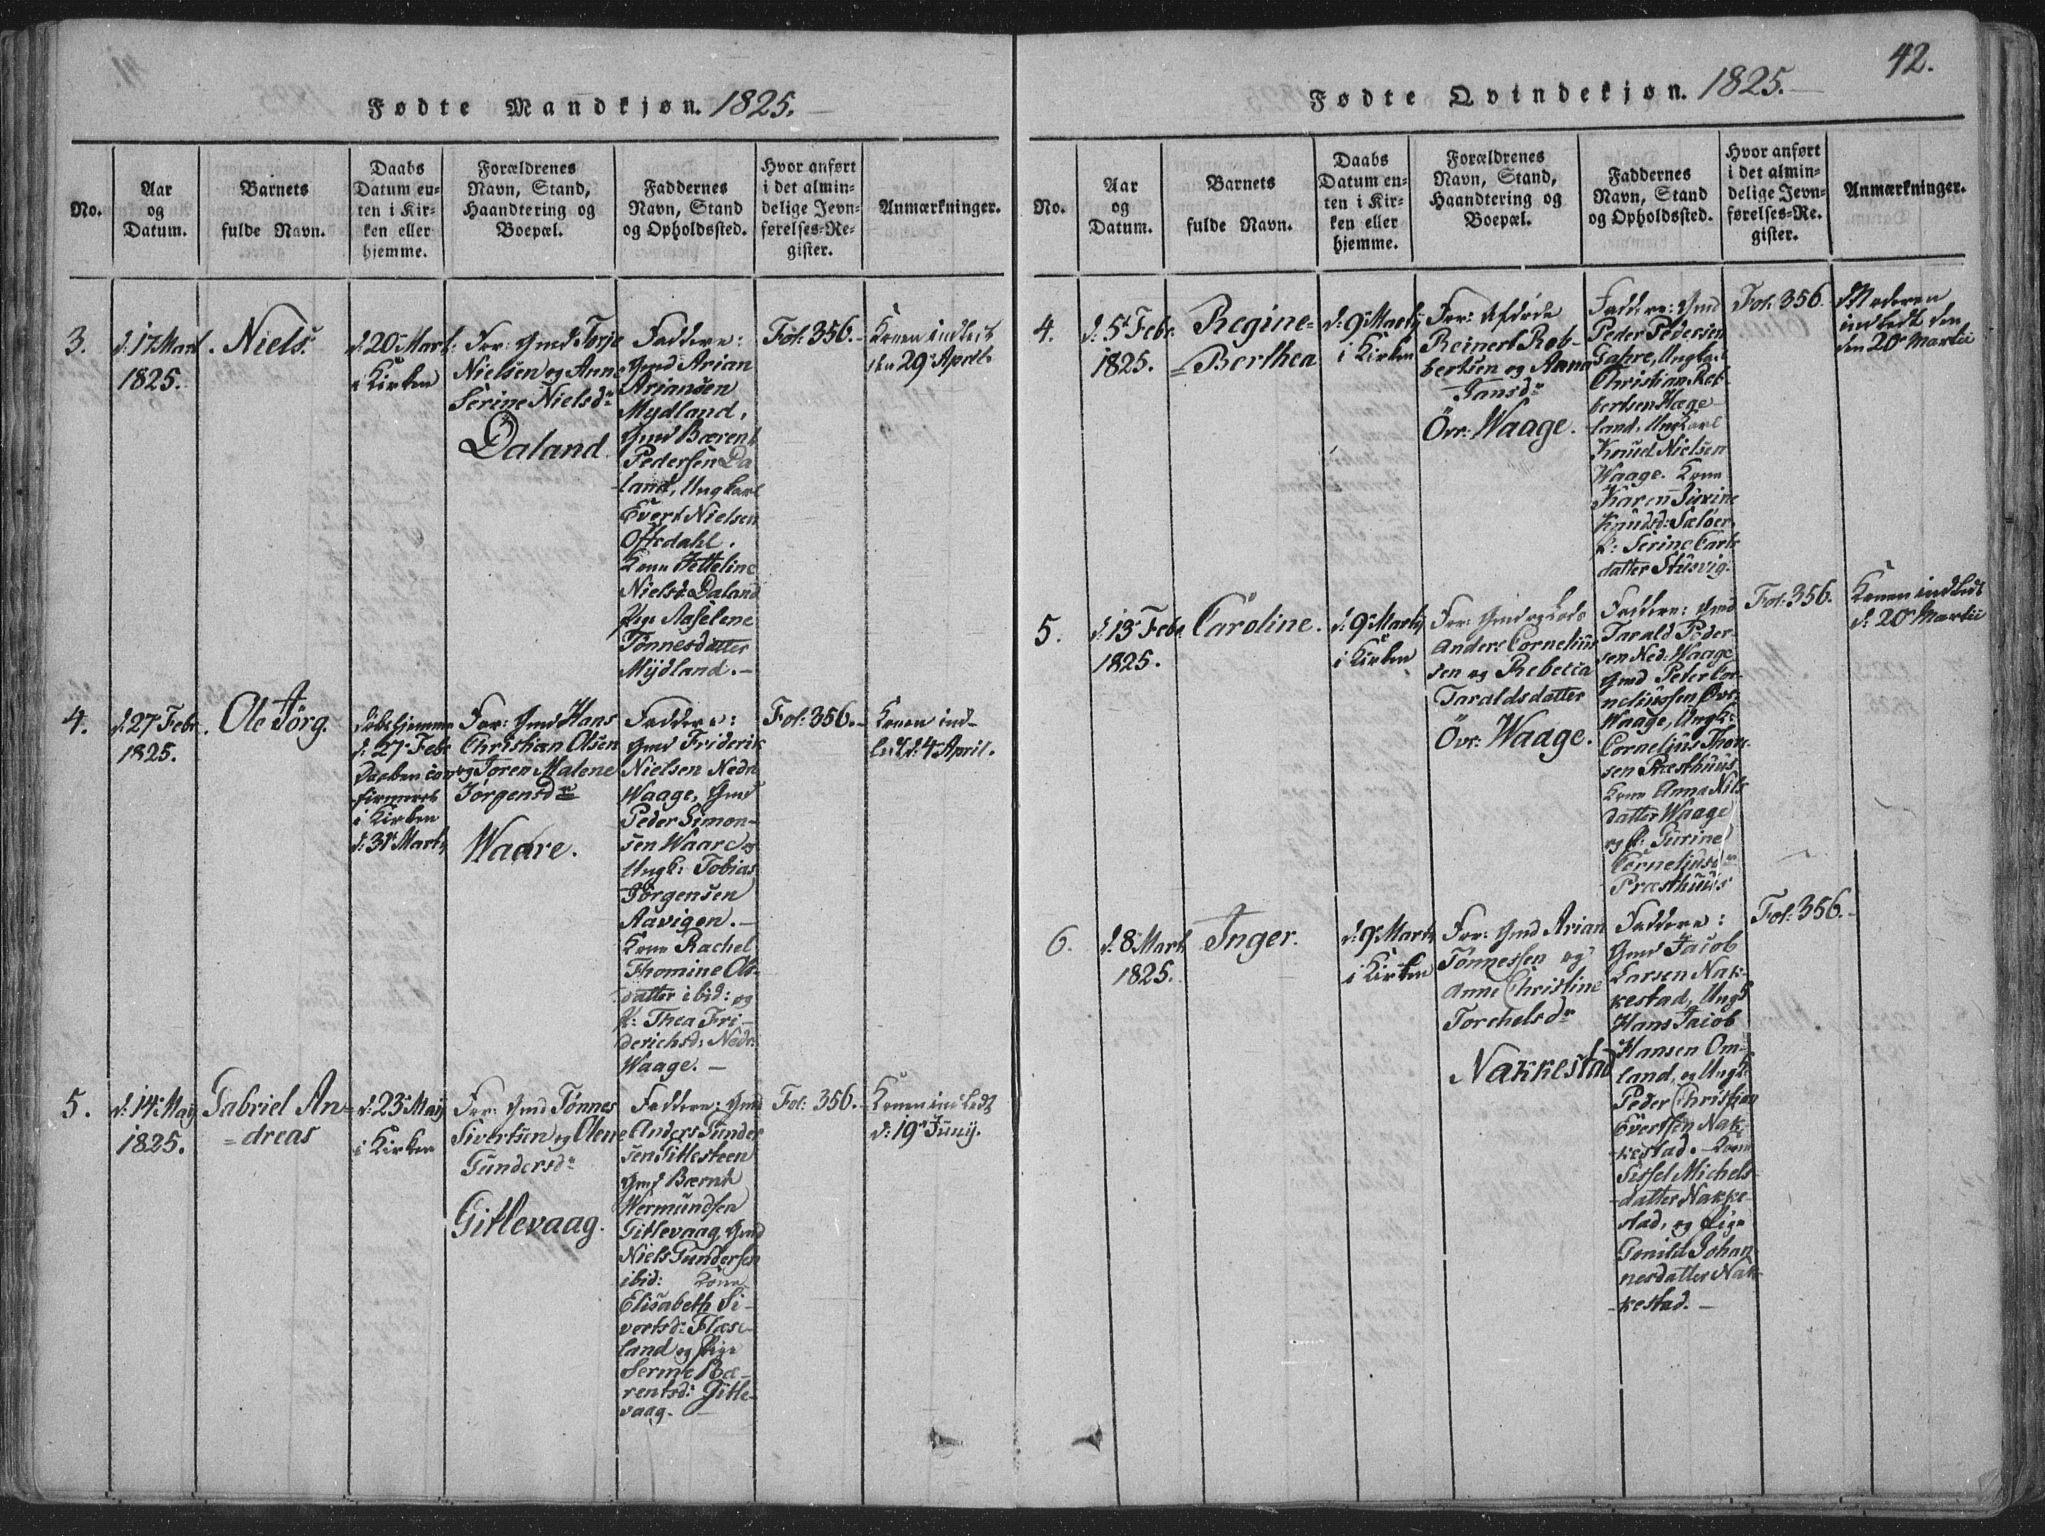 Fødte Mandkjøn. 1825.
No.
Aar
og
Datum.
Barnets
fulde Navn.
Daabs
Datum en-
ten i Kir-
ken eller
hjemme.
Forældrenes
Navn, Stand,
Haandtering og
Boepæl.
Faddernes
Navn, Stand
og Opholdssted.
Hvor anført
i det almin-
delige Jevn-
førelses-Re-
gister.
Anmærkninger.
3.
d. 17 Mart
1825.
Niels.
d. 20 Mart
i Kirken
For: Gmd Torje
Nielsen og Anne
Serine Nielsdr
Daland
Faddere:
Gmd Arian
Ariansen
Mydland,
Gmd Bærent
Pedersen Da
land, Ungkarl
Evert Nielsen
Offedahl.
Kone Jetteline
Nielsd. Daland
Pige Aaselene
Tönnesdatter
Mÿdland.
Fol: 356.
Konen indledt
den 29 April
4.
d. 27 Febr.
1825.
Ole Jörg.
døbt hjemme
d. 27 Febr
Daaben con
firmeret
i Kirken
d. 31 Marti
For: Gmd Hans
Christian Olsen
og Toren Malene
Jörgensdr
Waare.
Faddere:
Gmd Friderik
Nielsen Nedr
Waage, Gmd
Peder Simon-
sen Waare og
Ungk: Tobias
Jörgensen
Aavigen.
Kone Rachel
Thomine Ols-
datter ibid: og
P: Thea Fri-
derichsd: Nedr.
Waage.
Fol: 356.
Konen ind-
ledt d. 4 April.
5.
d. 14 Maij
1825.
Gabriel An=
=dreas
d. 23 Maij
i Kirken
For: Gmd Tönnes
Sivertsen og Olene
Gundersdr
Gitlevaag.
Faddere: Gmd
Anders Gunder
sen Gitlesteen
Gmd Bærnt
Wermundsen
Gitlevaag, Gmd
Niels Gundersen
ibid: Kone
Elisabeth Si-
vertsd: Flæse-
land og Pige
Serine Bæ-
rentsd: Gitle-
vaag.
Fol: 356.
Konen indledt
d: 19 Junij.
42.
Fødte Qvindekjøn. 1825.
No.
Aar
og
Datum.
Barnets
fulde Navn.
Daabs
Datum en-
ten i Kir-
ken eller
hjemme.
Forældrenes
Navn, Stand,
Haandtering og
Boepæl.
Faddernes
Navn, Stand
og Opholdssted.
Hvor anført
i det almin-
delige Jevn-
førelses-Re-
gister.
Anmærkninger.
4.
d. 5 Febr.
1825.
Regine=
=Berthea
d. 9 Martij
i Kirken
For: Afdöde
Reinert Rob-
bertsen og Anna
Jansdr
Övr: Waage.
Faddere: Gmd
Peder Pedersen
Jahre, Ungkarl
Christian Rob-
bertsen Hæge-
land, Ungkarl
Knud Nielsen
Waage. Kone
Karen Jurine
Knudsd: Sælöer
P: Serine Carls
datter Stusvig.
Fol: 356.
Moderen
indledt den
den 20 Martii
5.
d. 13 Febr
1825.
Caroline.
d. 9 Martij
i Kirken
For: Gmd og Lods
Anders Corneliu
sen og Rebecca
Taraldsdatter
Övr: Waage.
Faddere: Gmd
Tarald Peder-
sen Ned: Waage
Gmd Peter Cor-
neliussen Övr.
Waage, Ungk:
Cornelius Thom-
sen Præsthuus
Kone Anna Nils
datter Waage
og P: Jurine
Corneliusdr
Præsthuus
Fol: 356.
Konen indledt
d. 20 Martii
6.
d. 8 Mart
1825.
Inger.
d. 9 Martij
i Kirken
For: Gmd Arian
Tönnessen og
Anne Christine
Torchelsdr
Nakkestad
Faddere:
Gmd Jacob
Larsen Nak-
kestad, Ungk
Hans Jacob
Hansen Om-
land, og Ungk
Peder Christian
Evertsen Nak-
kestad. Kone
Sissel Michels-
datter Nakke-
stad, og Pige
Gonild Johan-
nesdatter Nak-
kestad.
Fol: 356.